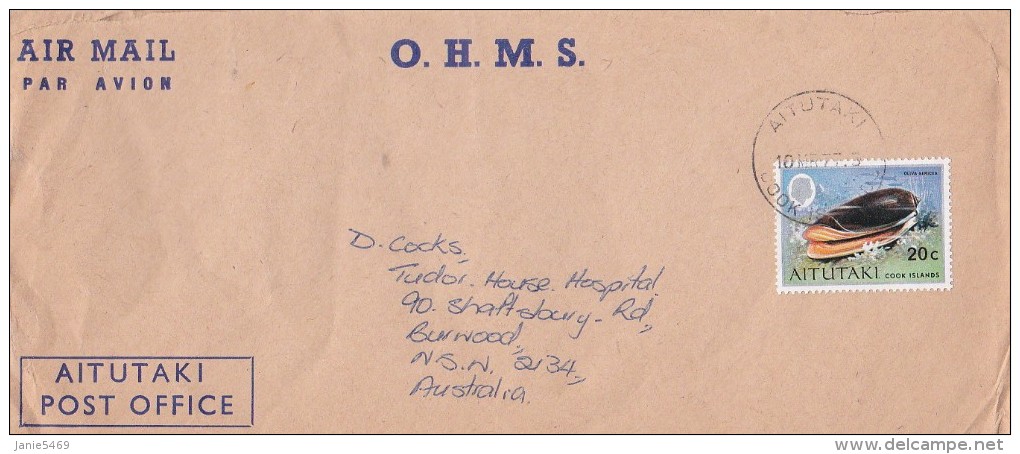 AIR MAIL
PAR AVION
O. H. M. S.
AITUTAKI
COOK
OLIVA SERICEA
20c
AITUTAKI COOK ISLANDS
D. Cocks,
Tudor. House. Hospital
90. Shaftsbury. Rd,
Burwood,
N.S.W. 2134,
Australia.
AITUTAKI
POST OFFICE
Janie5469
delcampe.net